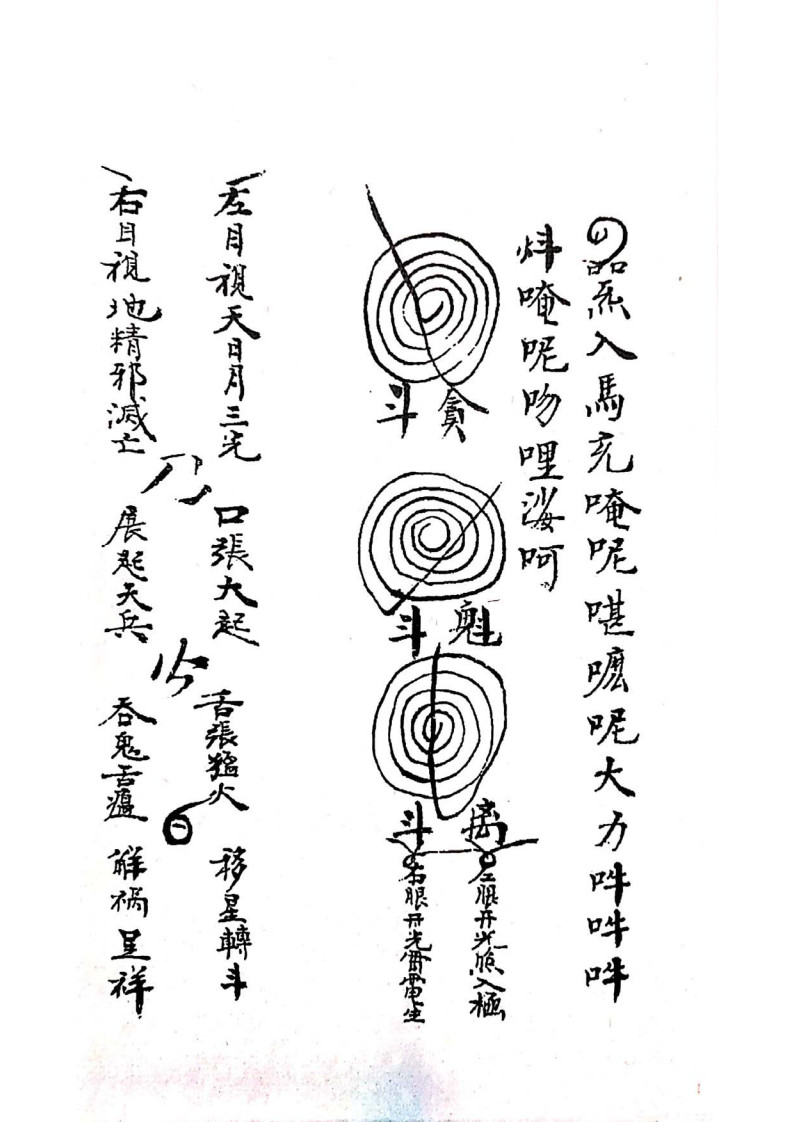 入馬充唵呢嗟嚒呢大力吽吽吽
炓唵呢吻哩娑呵
貪斗
魁斗
离斗
左眼开光照入極
右眼开光雷生
左目視天日月三光
口張大起
舌張猛火
移星轉斗
右目視地精邪滅亡
展起天兵
吞鬼舌
解禍呈祥